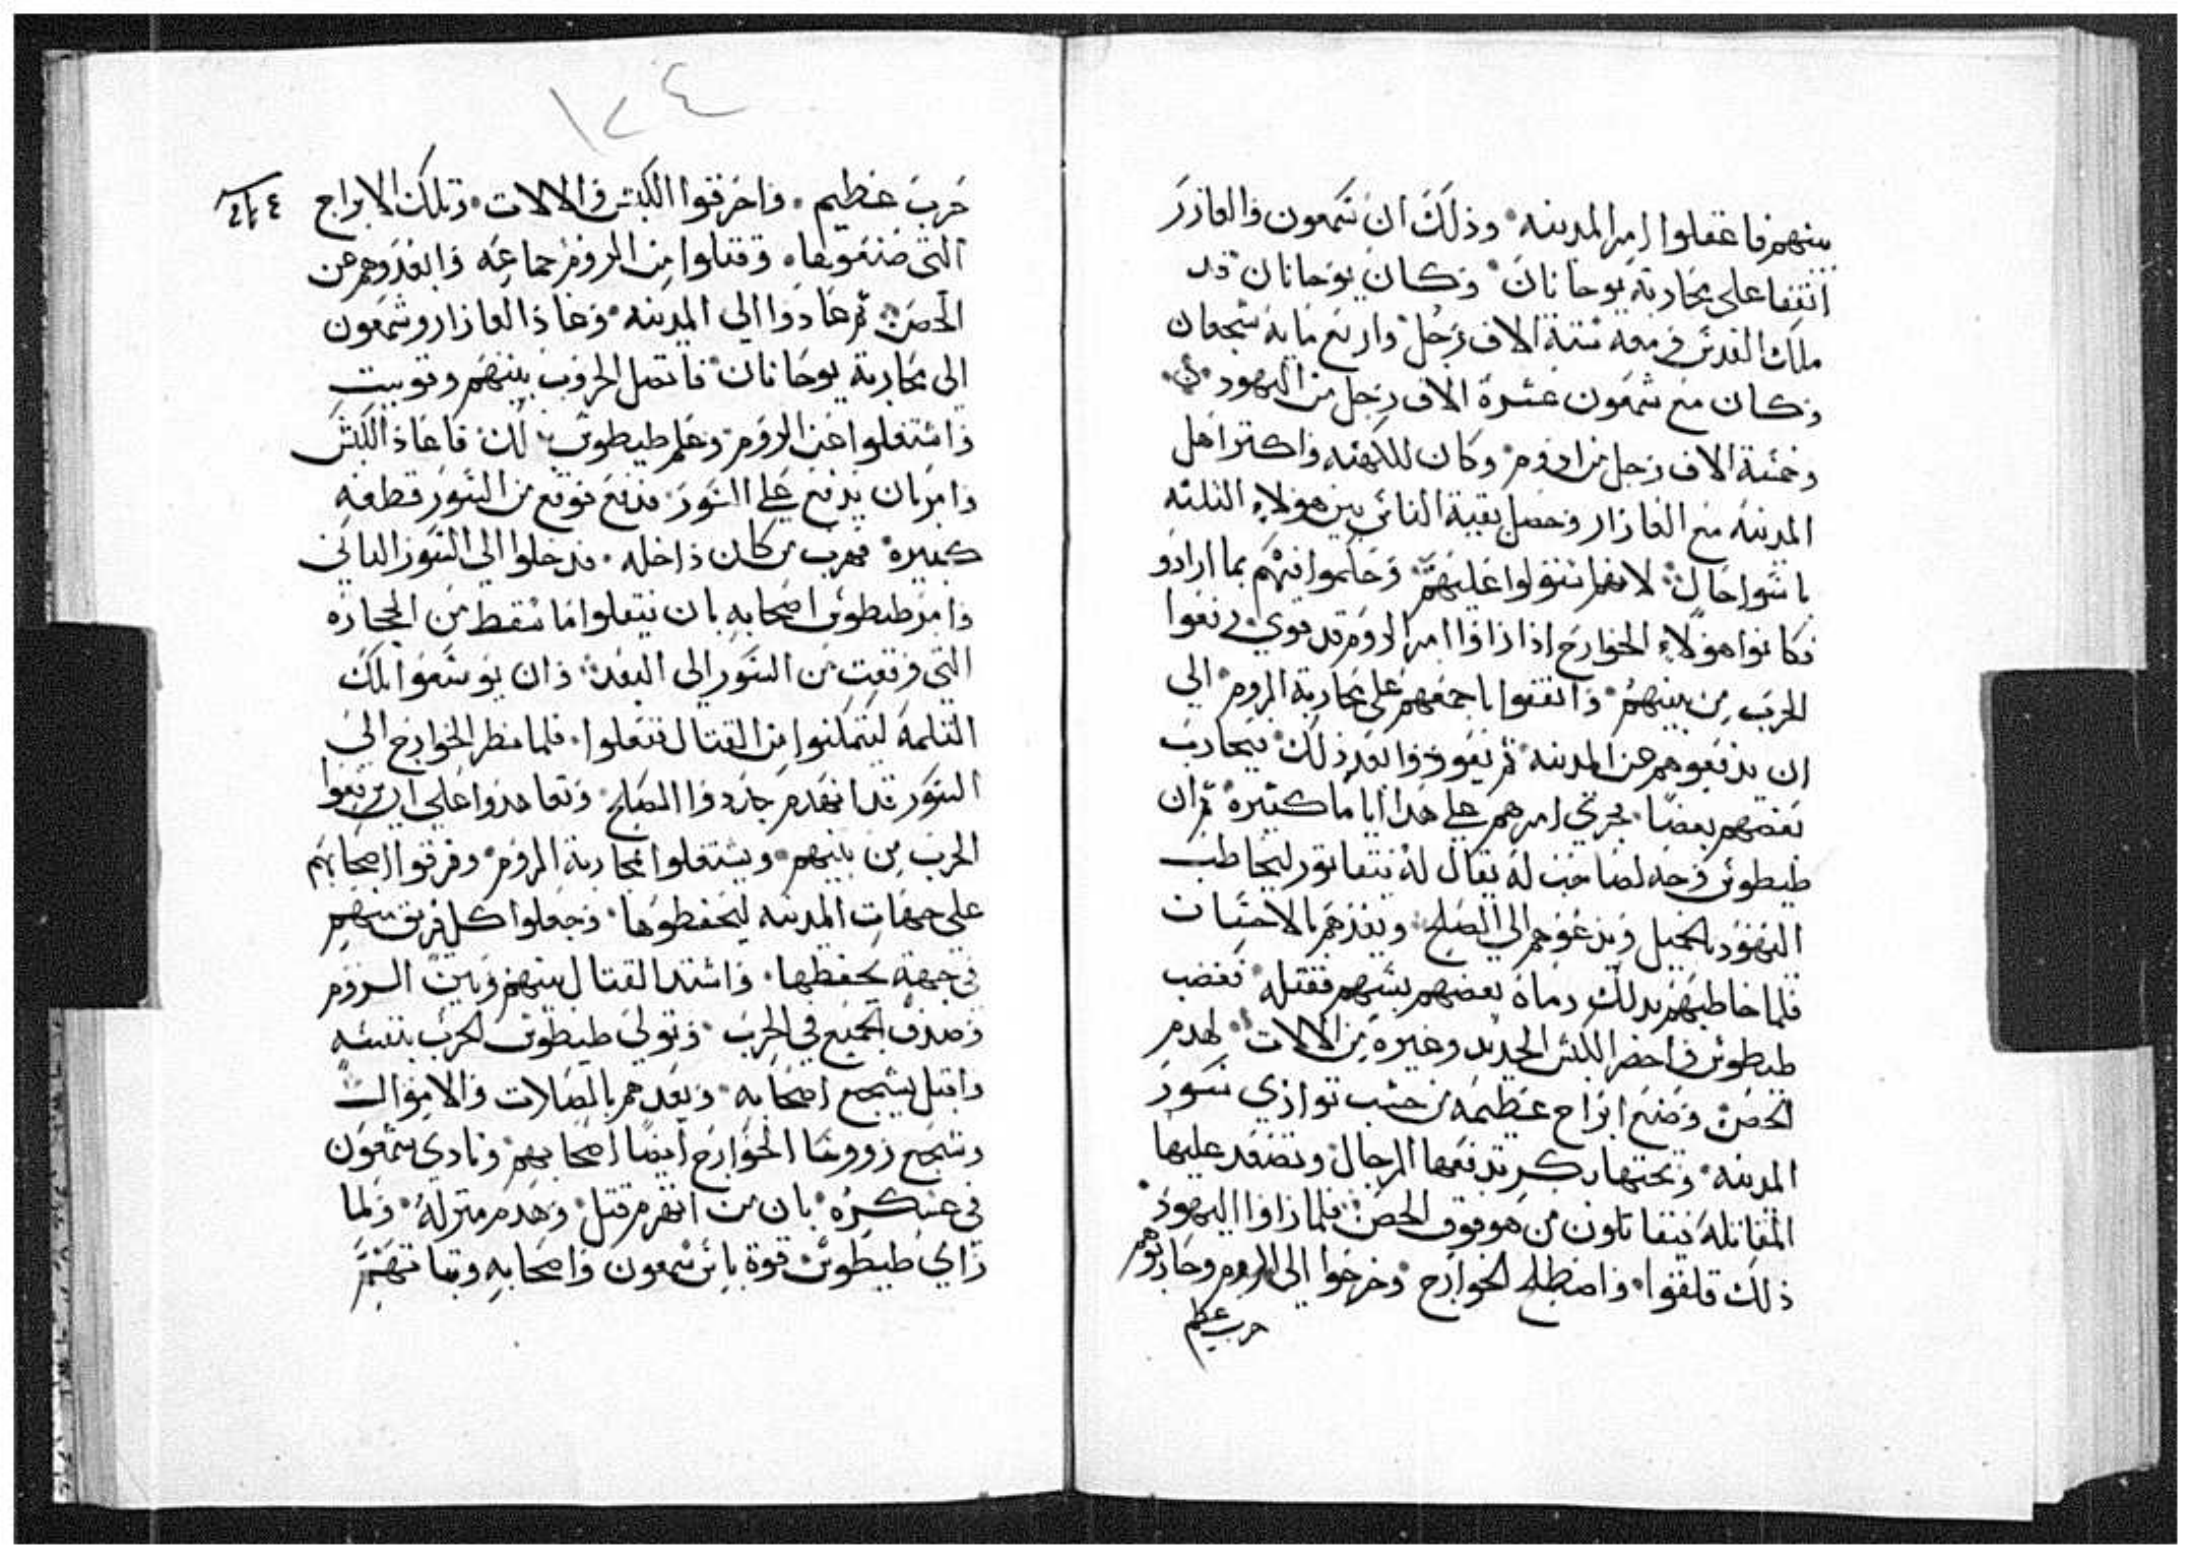 بينهم فاغفلوا امر المدينه وذلك ان شمعون والعازر
اتفقا على محاربة يوحانان وكان يوحانان قد
ملك القدس ومعه ستة الاف رجل واربع مايه شجعان
وكان مع شمعون عشرة الاف رجل من اليهود
وخمسة الاف رجل من اروم وكان للكهنه واكتر اهل
المدينه مع العازار وحصل بقية الناس بين هولاء التلته
باسوا حال لانهم استولوا عليهم وحكموا فيهم بما ارادو
فكانوا هولاء الخوارج اذا راوا امر الروم قد قوي رفعوا
الحرب من بينهم واتفقوا باجمعهم على محاربة الروم الى
ان يدفعوهم عن المدينه تم يعودوا بعد ذلك فيحارب
بعضهم بعضا فجري امرهم علي هذا اياما كتيرة تم ان
طيطوس وجه لصاحب له يقال له نيقانور ليخاطب
اليهود بالجميل ويدعوهم الي الصلح ويعدهم بالاحسان
فلما خاطبهم بدلك رماه بعضهم بسهم فقتله فغضب
طيطوس واحضر الكبش الحديد وغيره من الالات لهدم
الحصن وصنع ابراج عظيمه من خشب توازي سور
المدينه وتحتها بكر تدفعها الرجال وتصعد عليها
المقاتله فيقاتلون من هو فوق الحصن فلما راوا اليهود
ذلك قلقوا واصطلح الخوارج وخرجوا الى الروم وحاربوهم
حرب عظيم
١٢٤
حرب عظيم واحرقوا الكبش والالات وتلك الابراج
التي صنعوها وقتلوا من الروم جماعه وابعدوهم عن
الحصن تم عادوا الي المدينه وعاد العازار وشمعون
الى محاربة يوحانان فاتصل الحروب بينهم وقويت
واشتغلوا عن الروم وعلم طيطوس بذلك فاعاد الكبش
وامر بان يدفع علي السور فدفع فوقع من السور قطعه
كبيره فهرب من كان داخله فدخلوا الي السور التاني
وامر طيطوس اصحابه بان ينقلوا ما سقط من الحجاره
التي وقعت من السور الى البعد وان يوسعوا تلك
التلمه ليتمكنوا من القتال ففعلوا فلما نظر الخوارج الي
السور قد انهدم جددوا الصلح وتعاهدوا علي ان يرفعوا
الحرب من بينهم ويشتغلوا بمحاربة الروم وفرقوا اصحابهم
على جهات المدينه ليحفظوها وجعلوا كل فريق منهم
في جهة يحفظها واشتد القتال بينهم وبين الروم
وصدق الجميع في الحرب وتولي طيطوس الحرب بنفسه
واقبل يشجع اصحابه ويعدهم بالصلات والاموال
وشجع رووسا الخوارج ايضا اصحابهم ونادي شمعون
في عسكره بان من انهزم قتل وهدم منزله ولما
راي طيطوس قوة باس شمعون واصحابه وتباتهم